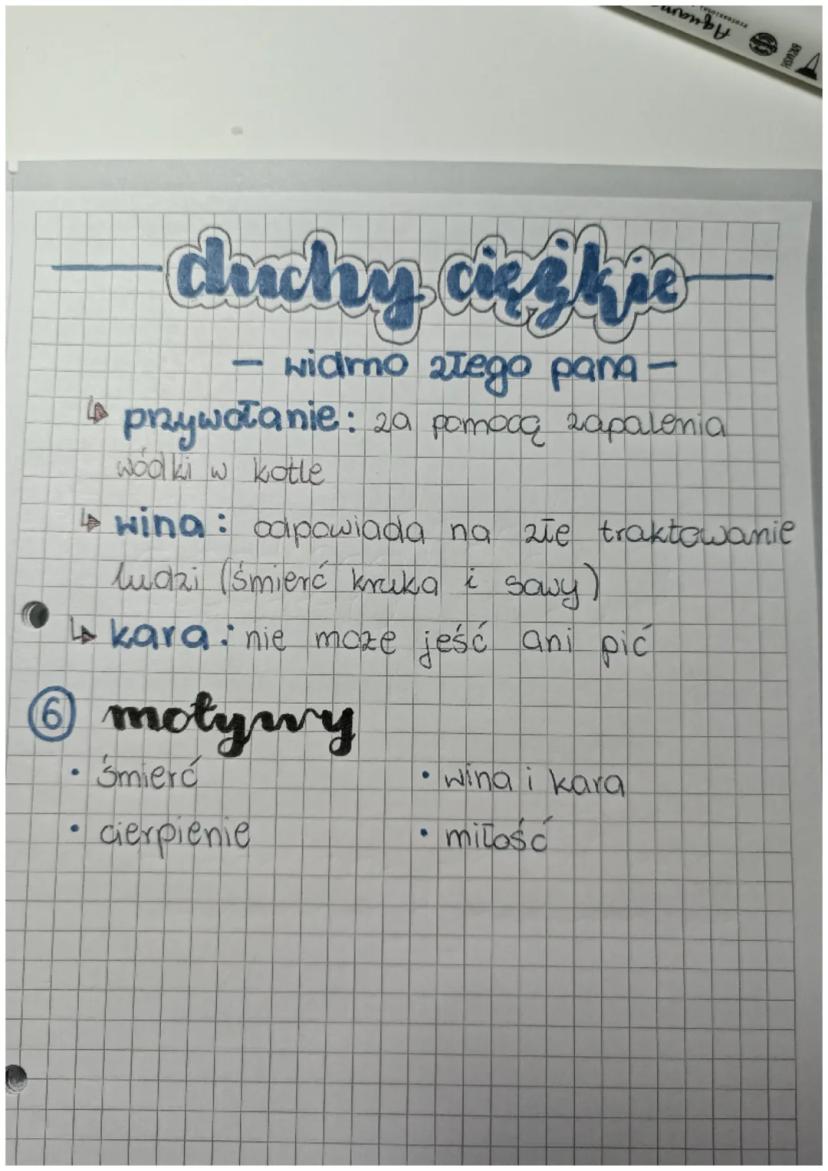 Aquare
BRUSH
duchy ciężkie
- widmo złego pana -
↳ przywołanie: za pomocą zapalenia
wódki w kotle
↳ wina: odpowiada na złe traktowanie
ludzi (śmierć kruka i sowy)
↳ kara: nie może jeść ani pić
6 motywy
• śmierć
• wina i kara
• cierpienie
• miłość